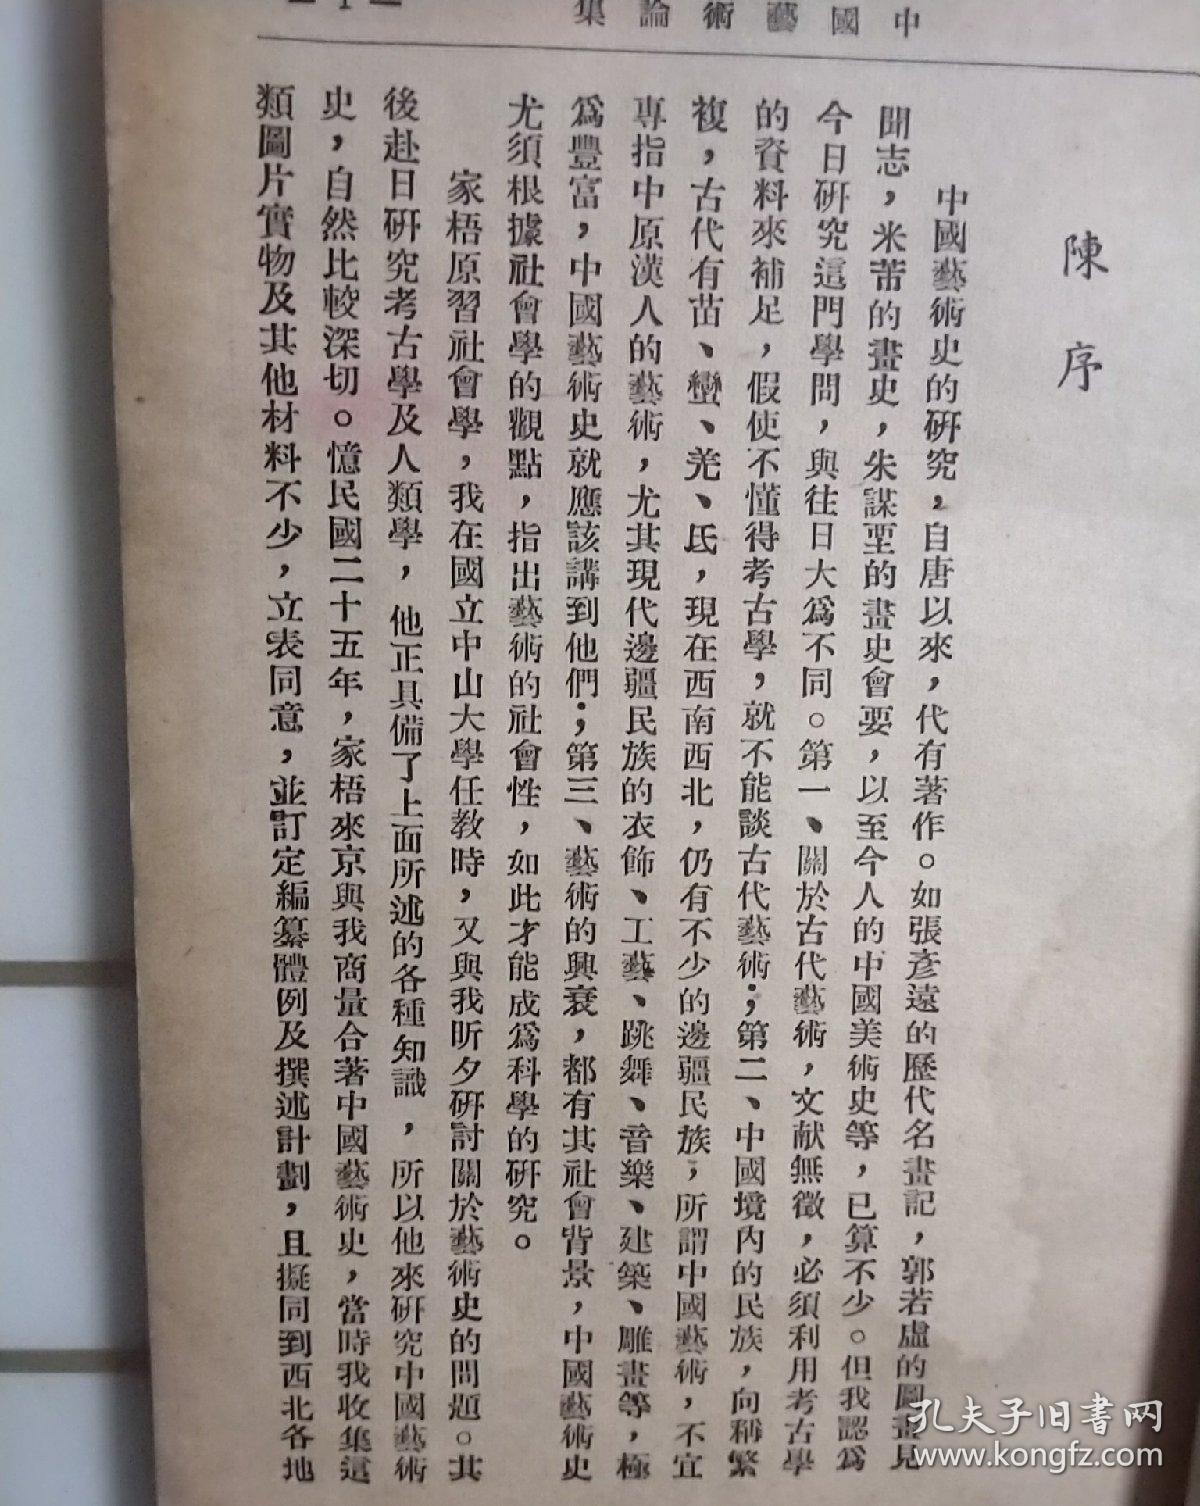 中國藝術論集
— 1 —
陳序
中國藝術史的研究，自唐以來，代有著作。如張彥遠的歷代名畫記，郭若虛的圖畫見
聞志，米芾的畫史，朱謀垔的畫史會要，以至今人的中國美術史等，已算不少。但我認爲
今日研究這門學問，與往日大爲不同。第一、關於古代藝術，文献無徵，必須利用考古學
的資料來補足，假使不懂得考古學，就不能談古代藝術；第二、中國境內的民族，向稱繁
複，古代有苗、蠻、羌、氐，現在西南西北，仍有不少的邊疆民族，所謂中國藝術，不宜
專指中原漢人的藝術，尤其現代邊疆民族的衣飾、工藝、跳舞、音樂、建築、雕畫等，極
爲豐富，中國藝術史就應該講到他們；第三、藝術的興衰，都有其社會背景，中國藝術史
尤須根據社會學的觀點，指出藝術的社會性，如此才能成爲科學的研究。
家梧原習社會學，我在國立中山大學任教時，又與我昕夕研討關於藝術史的問題。其
後赴日研究考古學及人類學，他正具備了上面所述的各種知識，所以他來研究中國藝術
史，自然比較深切。憶民國二十五年，家梧來京與我商量合著中國藝術史，當時我收集這
類圖片實物及其他材料不少，立表同意，並訂定編纂體例及撰述計劃，且擬同到西北各地
孔夫子旧書网
www.kongfz.com